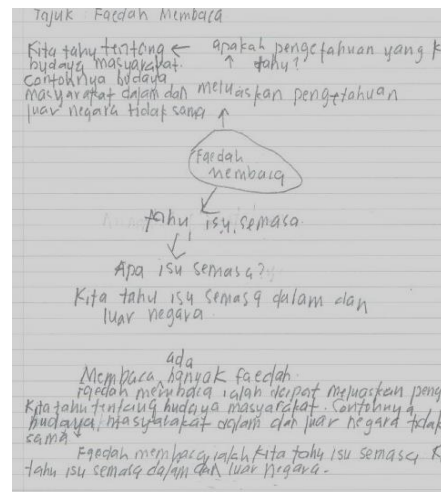 Tajuk : Faedah Membaca
Kita tahu tentang ← apakah pengetahuan yang k
budaya masyarakat. ↑ tahu?
Contohnya budaya
masyarakat dalam dan meluaskan pengetahuan
luar negara tidak sama ↑
Faedah
membaca
tahu isu semasa
Apa isu semasa?
Kita tahu isu semasa dalam dan
luar negara.
ada
Membaca banyak faedah.
Faedah membaca ialah dapat meluaskan peng
Kita tahu tentang budaya masyarakat. Contohnya
budaya masyarakat dalam dan luar negara tidak
sama.
Faedah membaca ialah kita tahu isu semasa. K
tahu isu semasa dalam dan luar negara.